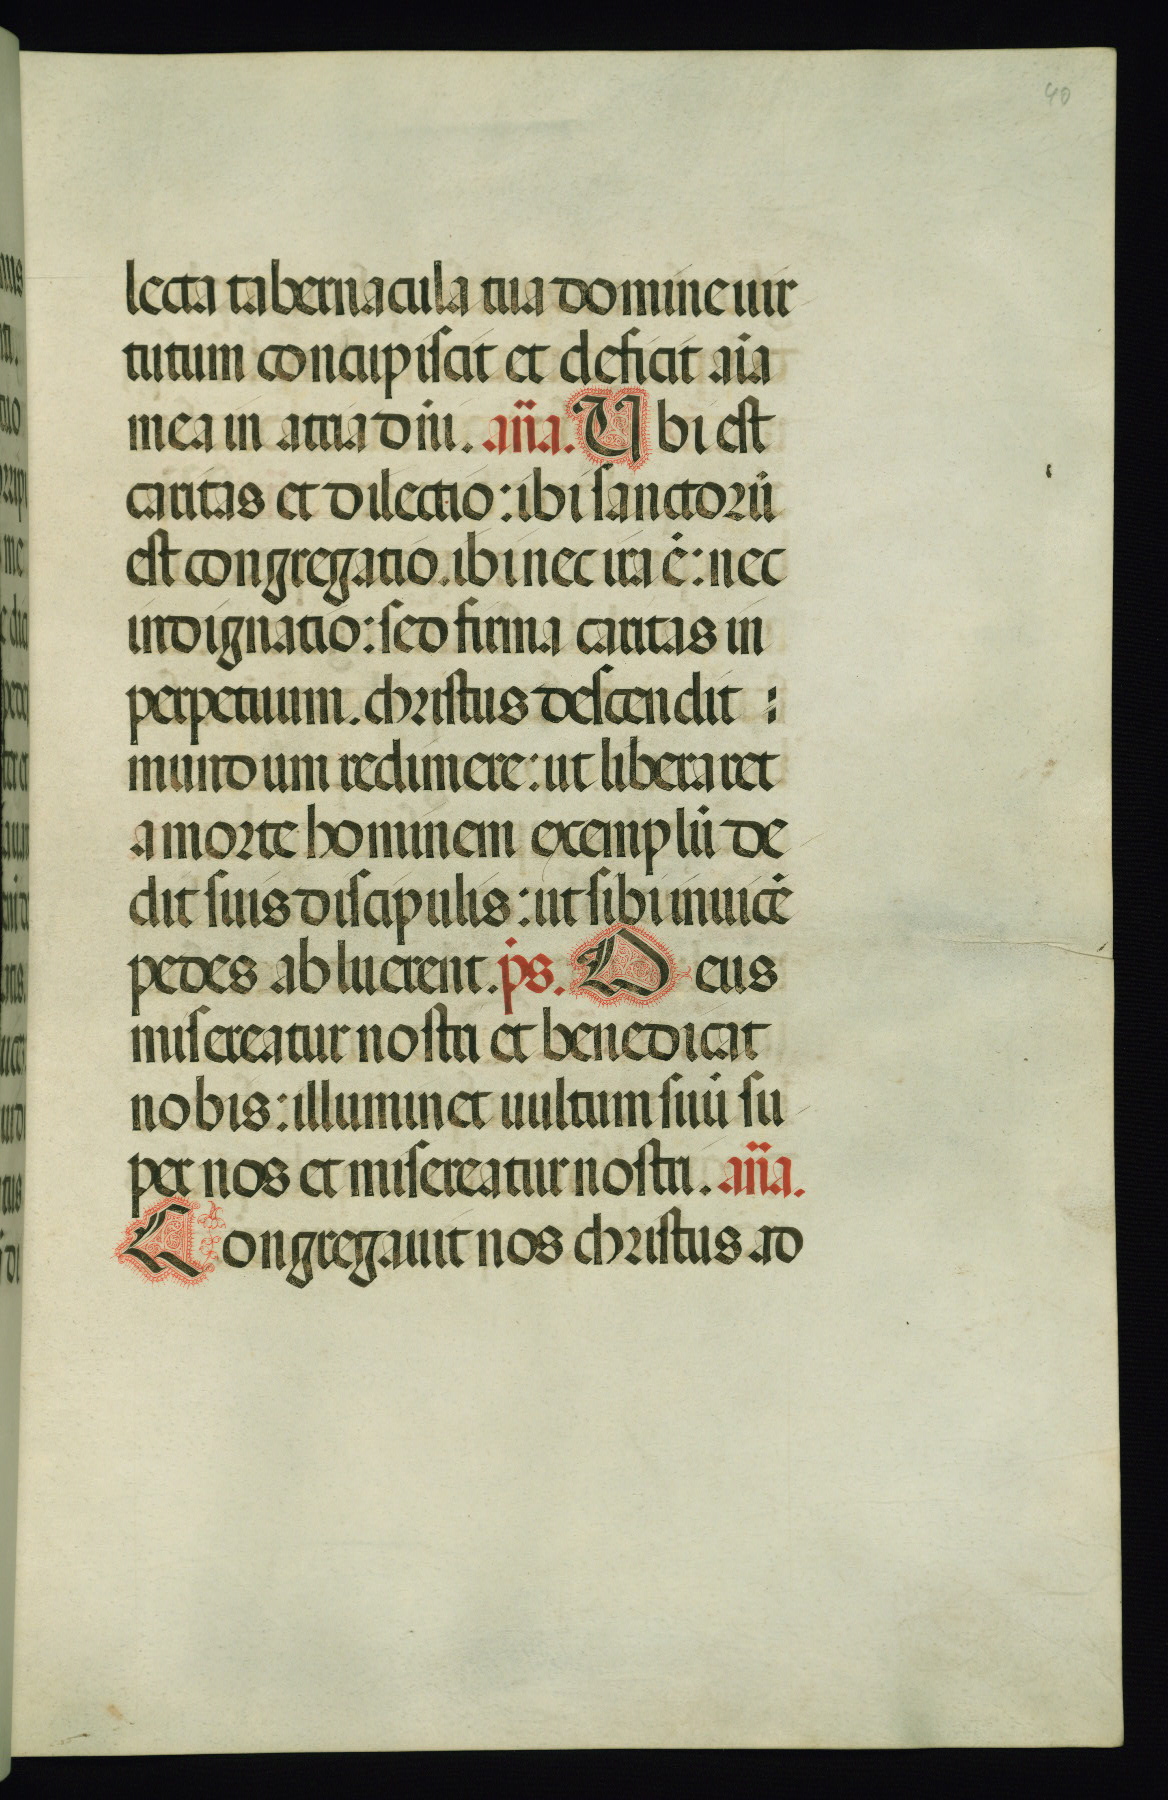 40
lecta tabernacula tua domine uir
tutum concupiscit et deficit aīa
mea in atria dñi. aña. Ubi est
caritas et dilectio: ibi sanctorū
est congregatio. ibi nec ira ē: nec
indignatio: sed firma caritas in
perpetuum. christus descendit :
mundum redimere: ut liberaret
a morte hominem exemplū de
dit suis discipulis: ut sibi inuicē
pedes abluerent. ps. Deus
misereatur nostri et benedicat
nobis: illuminet uultum suū su
per nos et misereatur nostri. aña.
Congregauit nos christus ad